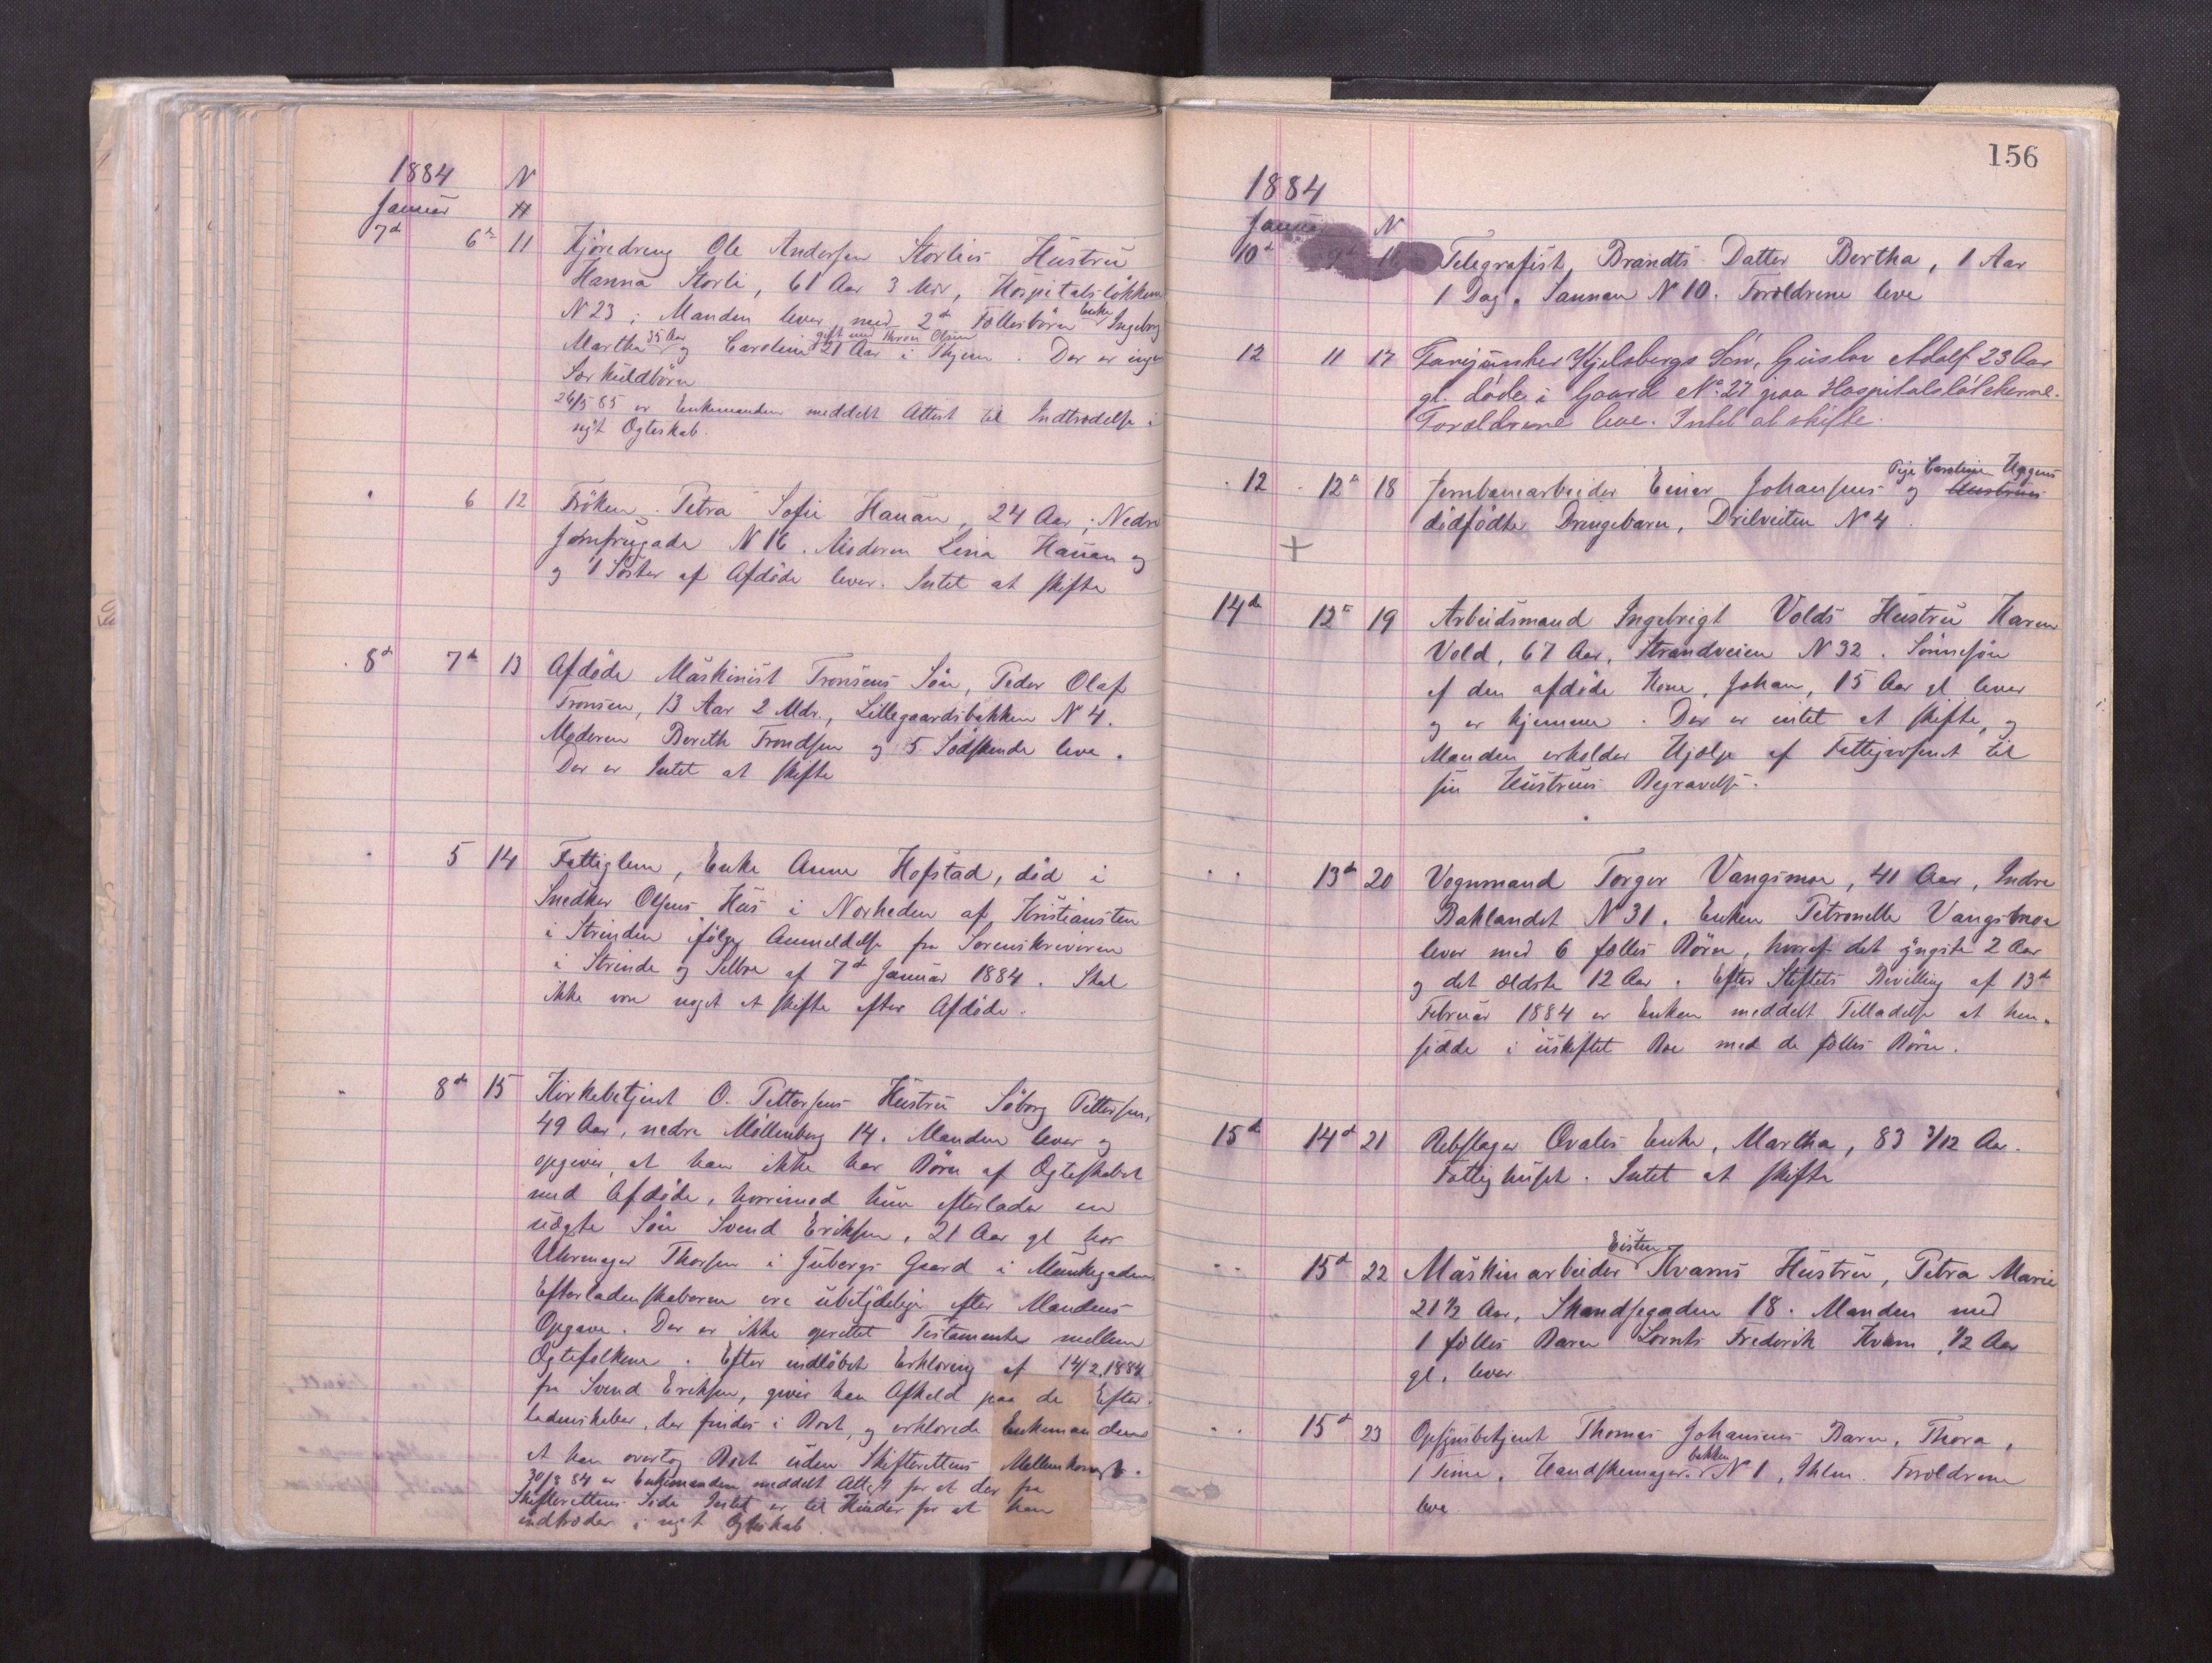 1884 N
Januar H
7de 6te 11 Kjøredreng Ole Andersen Storlies Hustru
Hanna Storli, 61 Aar 3 Mdr, Hospitalsløkken
N 23; Manden lever med 2de Fællesbørn Enke Ingeborg
Martha 35 Aar og Caroline gift med Thron Olsen 21 Aar i Skjern. Der er ingen
Særkuldbørn
26/5 85 er Enkemanden meddelt Attest til Indtrædelse i
nyt Ægteskab.
" 6 12 Frøken Petra Sofie Hauan, 24 Aar; Nedre
Jomfrugade N 16. Moderen Lina Hauan og
og 1 Søster af Afdøde lever. Intet at skifte
8de 7de 13 Afdøde Maskinist Tronsens Søn, Peder Olaf
Tronsen, 13 Aar 2 Mdr., Lillegaardsbakken N 4.
Moderen Bereth Trondsen og 5 Sødskende leve.
Der er Intet at skifte
" 5 14 Fattiglem, Enke Anne Hofstad, død i
Snedker Olsens Hus i Nærheden af Kristiansten
i Strinden ifølge Anmeldelse fra Sorenskriveren
i Strinde og Selbu af 7de Januar 1884. Skal
ikke være noget at skifte efter Afdøde.
" 8de 15 Kirkebetjent O. Pettersens Hustru Søborg Pettersen,
49 Aar, nedre Møllenberg 14. Manden lever og
opgiver, at han ikke har Børn af Ægteskabet
med Afdøde, hvorimod hun efterlader en
uægte Søn Svend Eriksen, 21 Aar gl hos
Uhrmager Thorsen i Jubergs Gaard i Munkegaden
Efterladenskaberne ere ubetydelige efter Mandens
Opgave. Der er ikke oprettet Testamente mellem
Ægtefolkene. Efter indløbet Erklæring af 14/2 1884
fra Svend Eriksen, giver han Afkald paa de Efter-
ladenskaber, der findes i Boet, og erklærede Enkemanden
at han overtog Boet uden Skifterettens Mellemkomst.
30/8 84 er Enkemanden meddelt Attest for at der fra
Skifterettens Side Intet er til Hinder for at han
indtræder i nyt Ægteskab.
156
1884
Januar N
10de Telegrafist Brandts Datter Bertha, 1 Aar
1 Dag. Sannan N 10. Forældrene leve
12 11 17 Fanejunker Kjelsbergs Søn, Gustav Adolf 23 Aar
gl. døde i Gaard No 27 paa Hospitalsløkkerne.
Forældrene leve. Intet at skifte.
12 12te 18 Jernbanearbeider Einar Johansens og Pige Caroline Hagens Hustrues
dødfødte Drengebarn, Prilveiten N 4.
+
14de 12te 19 Arbeidsmand Ingebrigt Volds Hustru Karen
Vold, 67 Aar, Strandveien N 32. Sønnesøn
af den afdøde Kone, Johan, 15 Aar gl lever
og er hjemme. Der er intet at skifte, og
Manden erholder Hjælp af Fattigvæsenet til
sin Hustrus Begravelse.
" 13de 20 Vognmand Torger Vangsmoe, 41 Aar, Indre
Baklandet N 31. Enken Petronelle Vangsmoe
lever med 6 fælles Børn, hvoraf det yngste 2 Aar
og det ældste 12 Aar. Efter Stiftets Bevilling af 13de
Februar 1884 er Enken meddelt Tilladelse at hen-
sidde i uskiftet Boe med de fælles Børn.
15de 14de 21 Rebslager Ovales Enke, Martha, 83 3/12 Aar.
Fattighuset. Intet at skifte
" 15de 22 Maskinarbeider Eisten Kvams Hustru, Petra Marie
21 1/2 Aar, Skandsegaden 18. Manden med
1 fælles Barn Lornts Frederik Kvam, 1/2 Aar
gl. lever
" 15de 23 Opsynsbetjent Thomas Johansens Barn, Thora,
1 Time. Handskemagerbakken N 1, Ihlen. Forældrene
leve